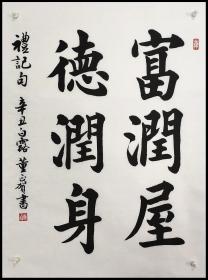 富潤屋
德潤身
禮記句 辛丑白露 董
書